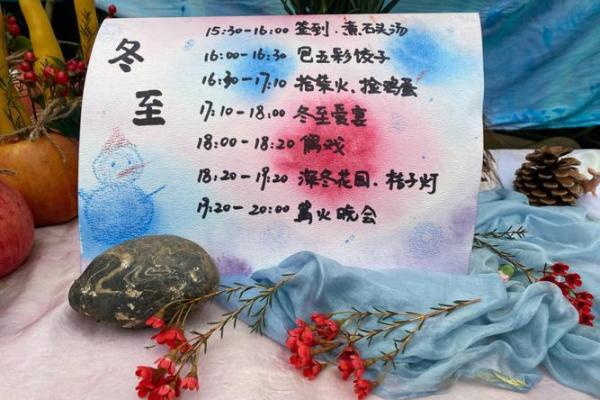 冬至
15:30-16:00 签到、煮石头汤
16:00-16:30 包五彩饺子
16:30-17:10 拾柴火、捡鸡蛋
17:10-18:00 冬至爱宴
18:00-18:20 偶戏
18:20-19:20 深冬花园、桔子灯
19:20-20:00 篝火晚会